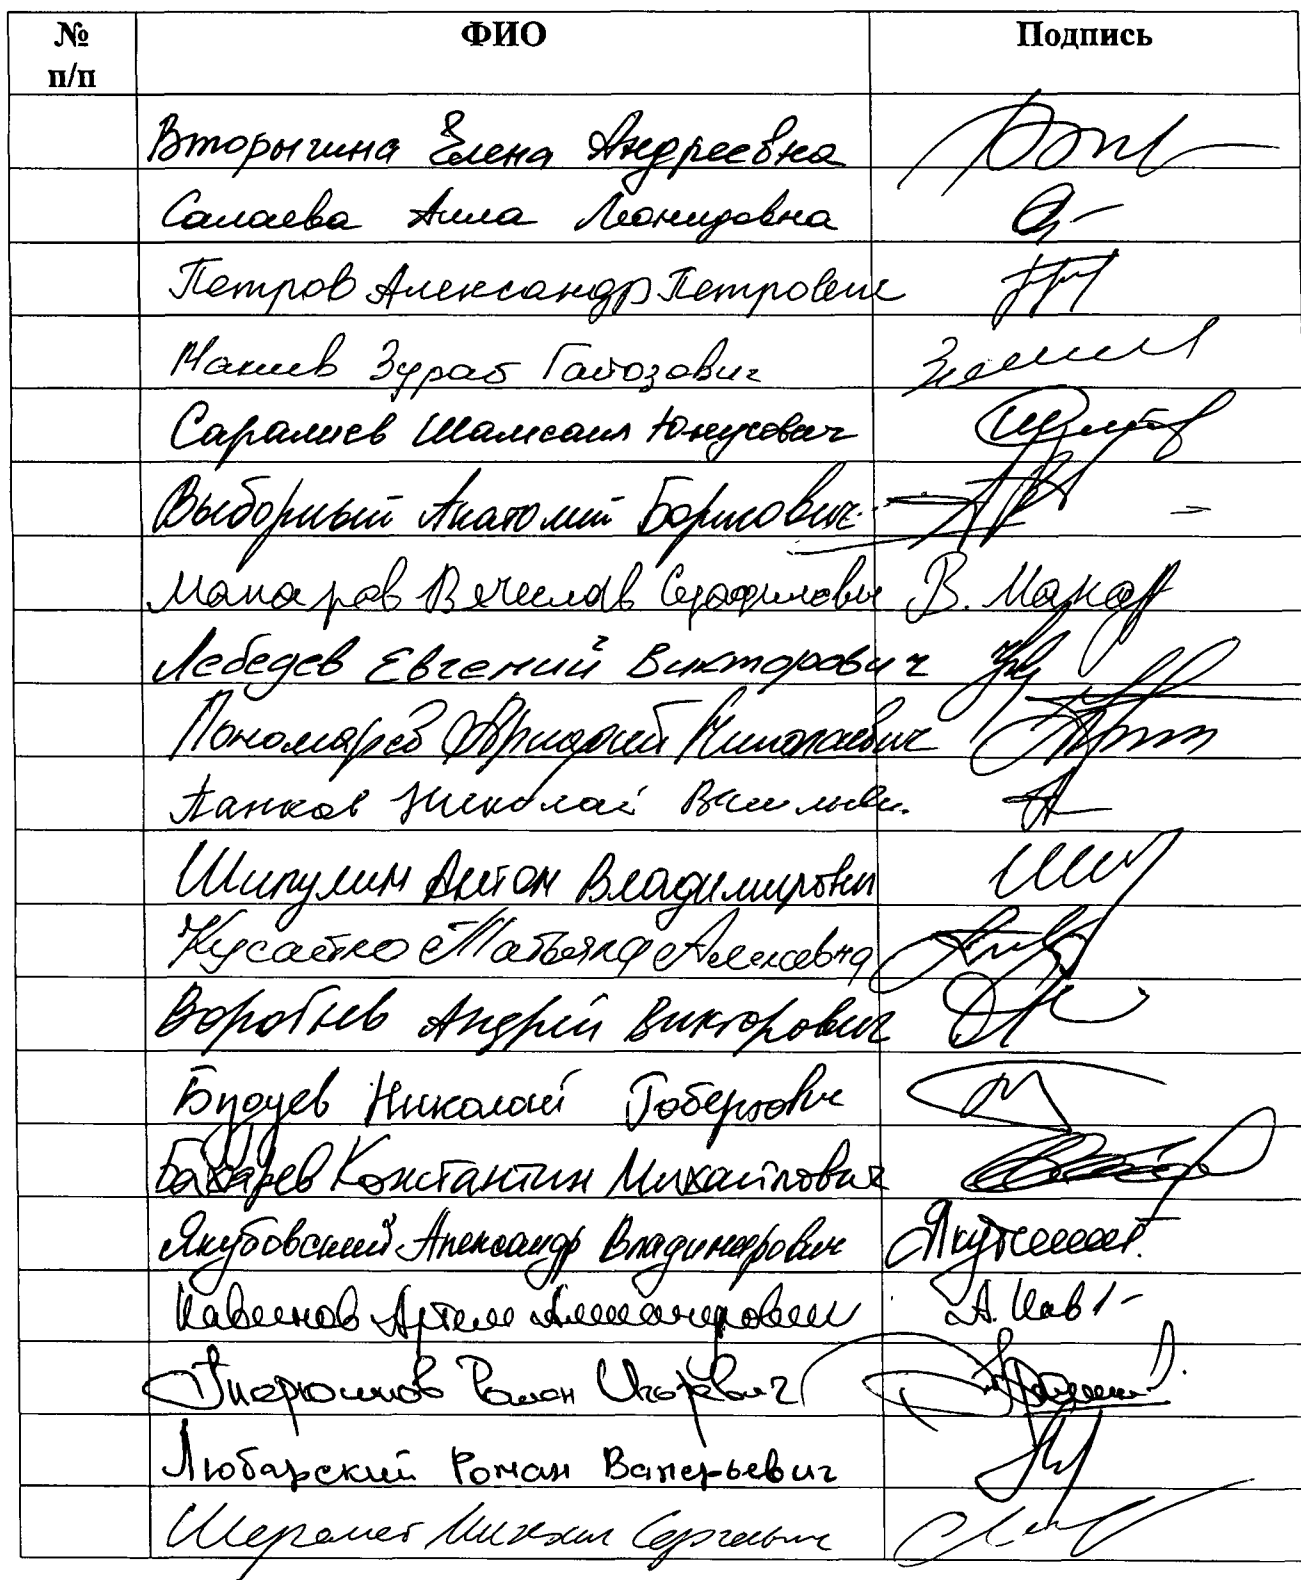 № п/п ФИО Подпись
Вторыгина Елена Андреевна
Салаева Алла Леонидовна
Петров Александр Петрович
Макиев Зураб Гайозович
Саралиев Шамсаил Юнусович
Выборный Анатолий Борисович
Макаров Вячеслав Серафимович В. Макар
Лебедев Евгений Викторович
Пономарёв Аркадий Николаевич
Панков Николай Васильевич
Шипулин Антон Владимирович
Кусайко Татьяна Алексеевна
Воробьев Андрей Викторович
Будуев Николай Робертович
Бахарев Константин Михайлович
Якубовский Александр Владимирович
Кавинов Артём Александрович А. Кав
Роман Игоревич
Любарский Роман Валерьевич
Шеремет Михаил Сергеевич